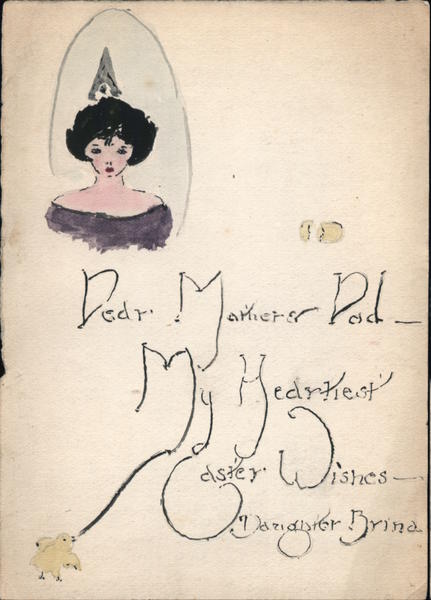 Dear Mother & Dad —
My Heartiest
Easter Wishes —
Daughter Brina